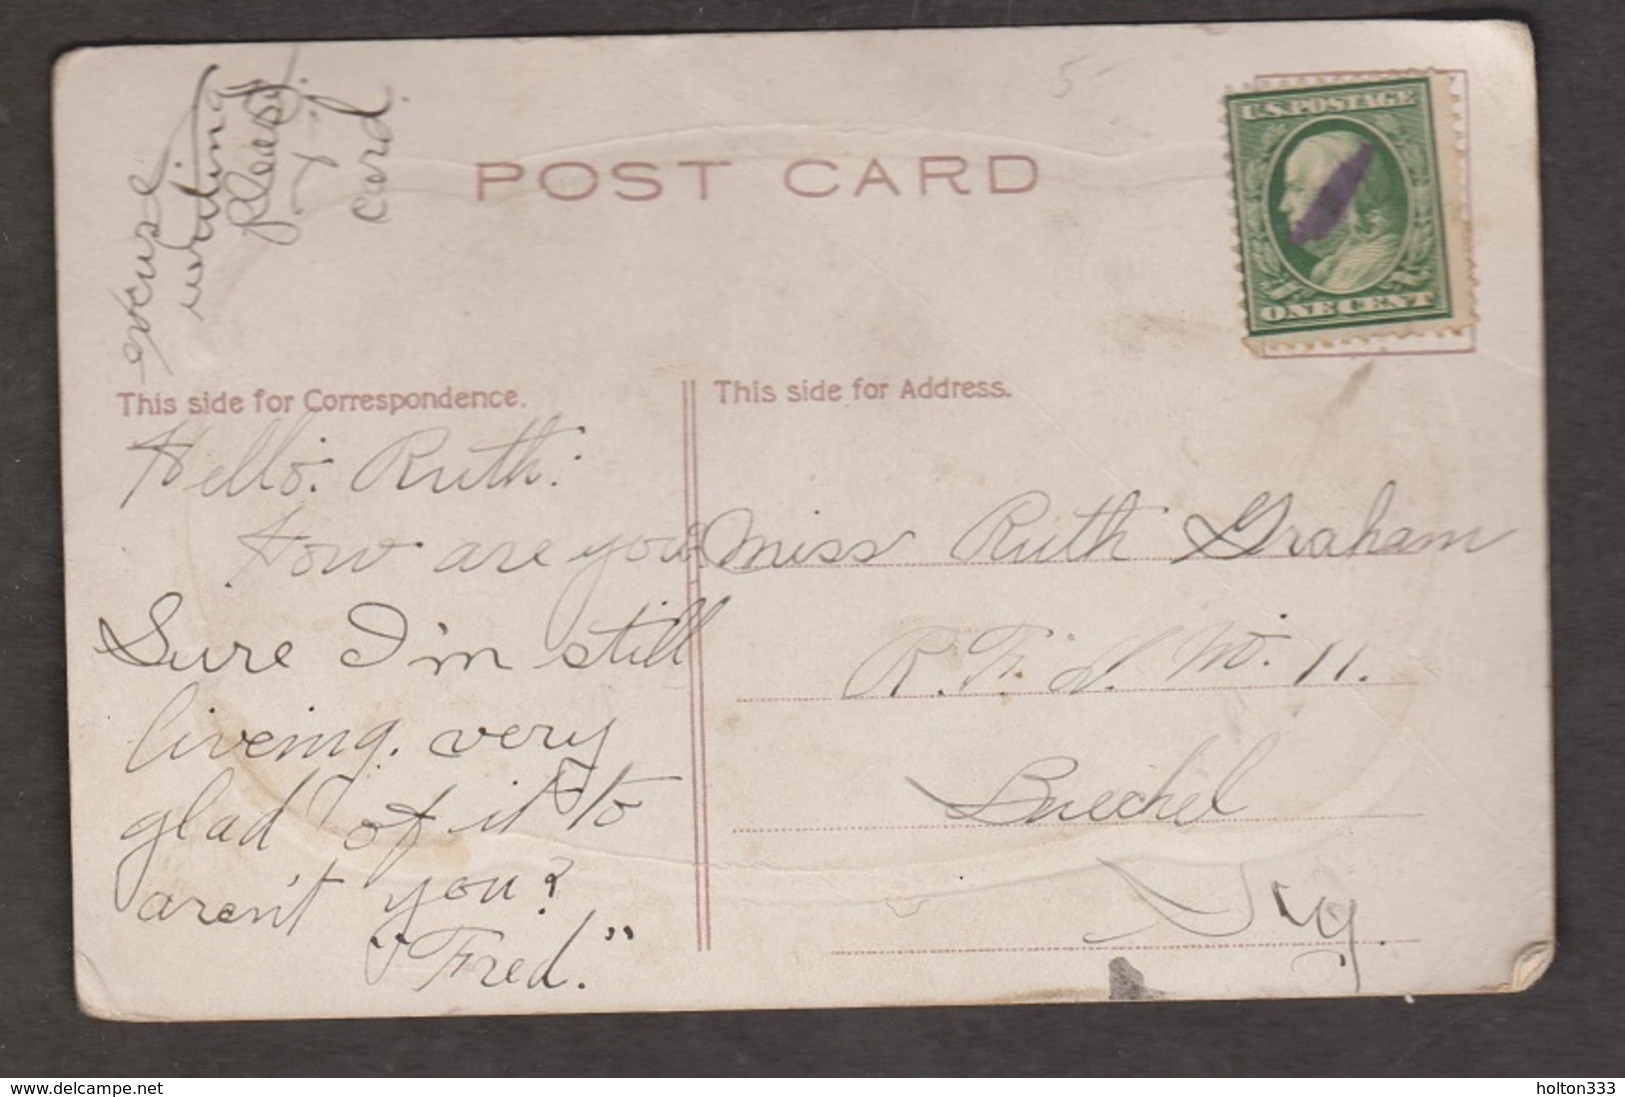 excuse
writing
please
+
card.
5-
POST CARD
U.S. POSTAGE
ONE CENT
This side for Correspondence.
This side for Address.
Hello. Ruth.
How are you?
Sure I'm still
liveing. very
glad of it to
aren't you?
"Fred."
Miss Ruth Graham
R. F. D. No. 11.
Buechel
Ky.
www.delcampe.net
holton333